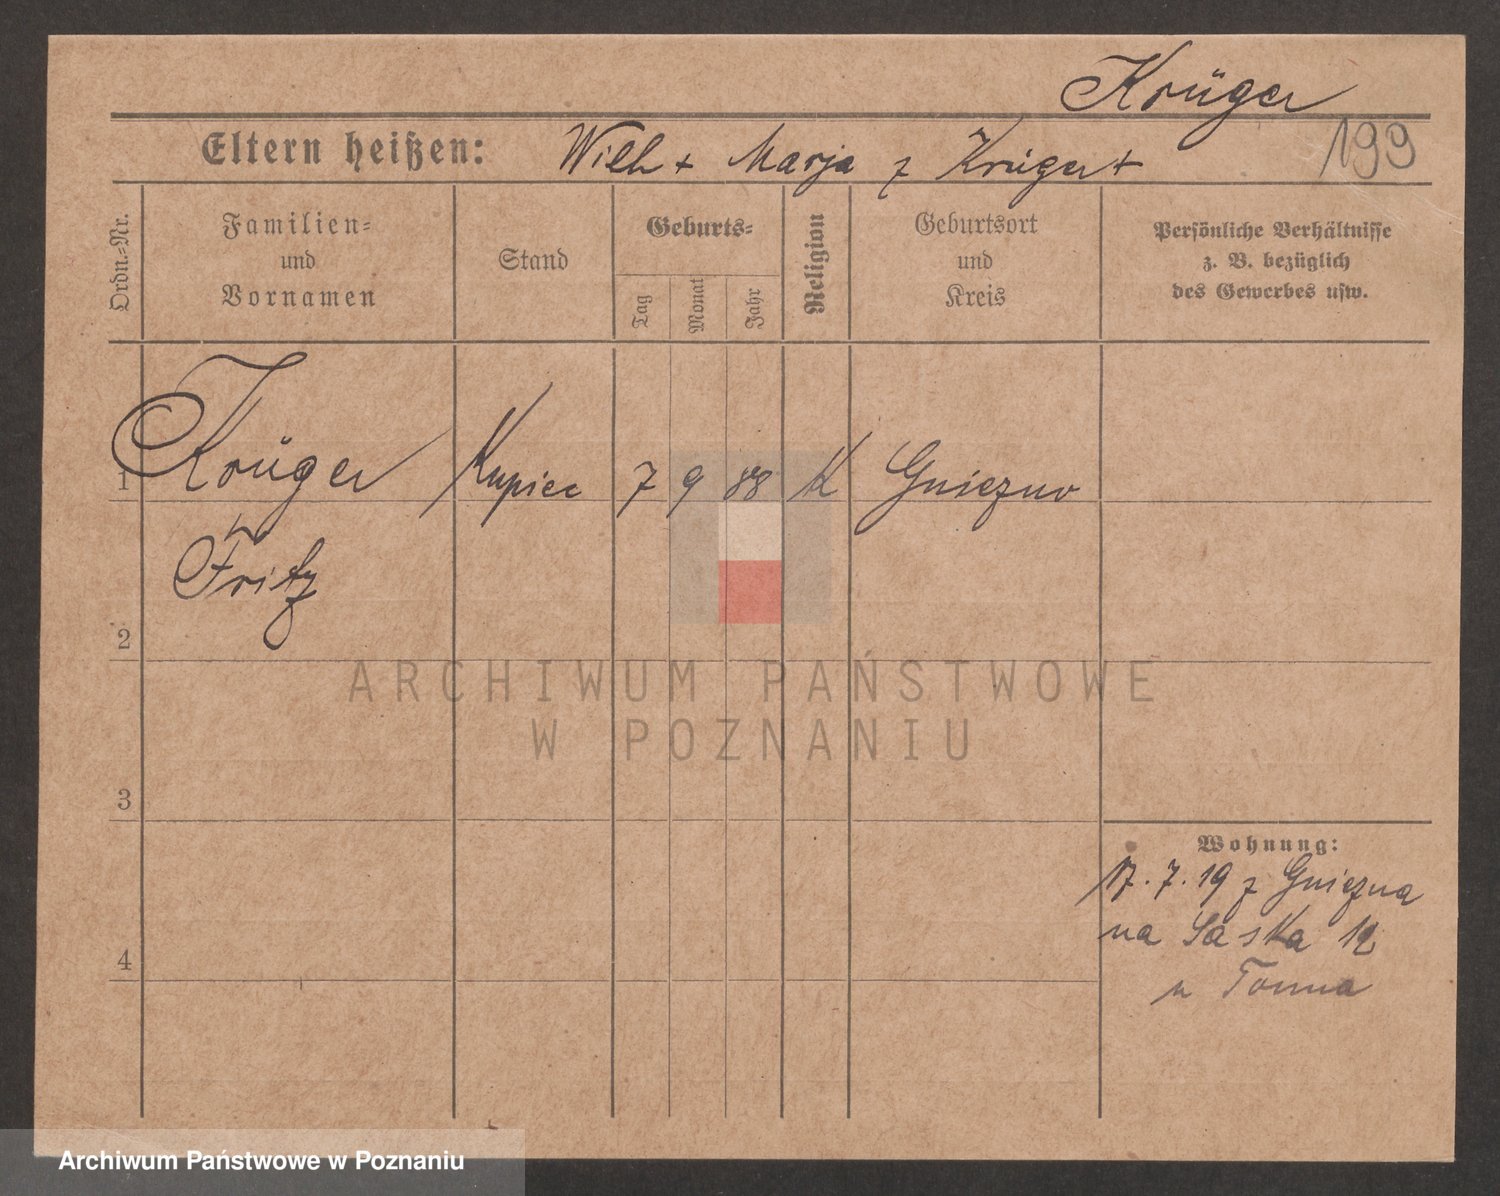 Krüger
199
Eltern heißen: Wilh + Marja z Krüger +
Ordn.-Nr.
Familien- und Vornamen
Stand
Geburts-
Tag
Monat
Jahr
Religion
Geburtsort und Kreis
Persönliche Verhältnisse
z. B. bezüglich
des Gewerbes usw.
1 Krüger Kupiec 7 9 88 K Gniezno
Fritz
2
ARCHIWUM PAŃSTWOWE
W POZNANIU
3
Wohnung:
17.7.19 z Gniezna
na Saska 12
4
u
Archiwum Państwowe w Poznaniu